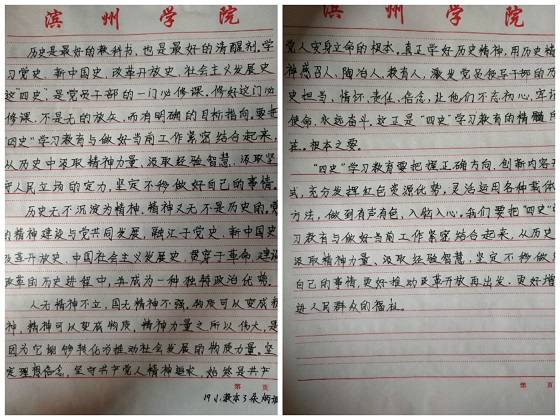 滨州学院
历史是最好的教科书，也是最好的清醒剂。学
习党史、新中国史、改革开放史、社会主义发展史
这"四史"，是党员干部的一门必修课。修好这门必
修课，不是无的放矢，而有明确的目标指向，要把
"四史"学习教育与做好当前工作紧密结合起来，
从历史中汲取精神力量、汲取经验智慧、汲取坚
守人民立场的定力，坚定不移做好自己的事情。
历史无不沉淀为精神，精神又无不是历史的，党
的精神建设与党共同发展，融汇于党史、新中国史
改革开放史、中国社会主义发展史，贯穿于革命、建设
改革的历史进程中，并成为一种独特政治优势。
人无精神不立，国无精神不强。物质可以变成精
神，精神可以变成物质，精神力量之所以伟大，是
因为它能够转化为推动社会发展的物质力量。坚
定理想信念，坚守共产党人精神追求，始终是共产
第 页
滨州学院
党人安身立命的根本。真正学好历史精神，用历史精
神感召人、陶冶人、教育人，激发党员领导干部的历
史担当、情怀、责任、信念，让他们不忘初心、牢记
使命、永远奋斗，这正是"四史"学习教育的精髓所
在、根本之要。
"四史"学习教育要把握正确方向，创新内容形
式，充分发挥红色资源优势，灵活运用各种载体
方法，做到有声有色，入脑入心。我们要把"四史"学
习教育与做好当前工作紧密结合起来，从历史
汲取精神力量、汲取经验智慧，坚定不移做好
自己的事情，更好推动改革开放再出发、更好增
进人民群众的福祉。
第 页